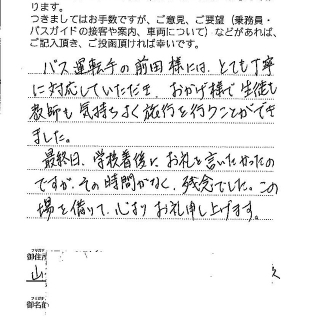 ります。
つきましてはお手数ですが、ご意見、ご要望（乗務員・
バスガイドの接客や案内、車両について）などがあれば、
ご記入頂き、ご投函頂ければ幸いです。
バス運転手の前田様には、とても丁寧
に対応していただき、おかげ様で生徒も
教師も気持ちよく旅行を行うことができ
ました。
最終日、学校着後に、お礼を言いたかったの
ですが、その時間がなく、残念でした。この
場を借りて、心よりお礼申し上げます。
御住所
山
御名前